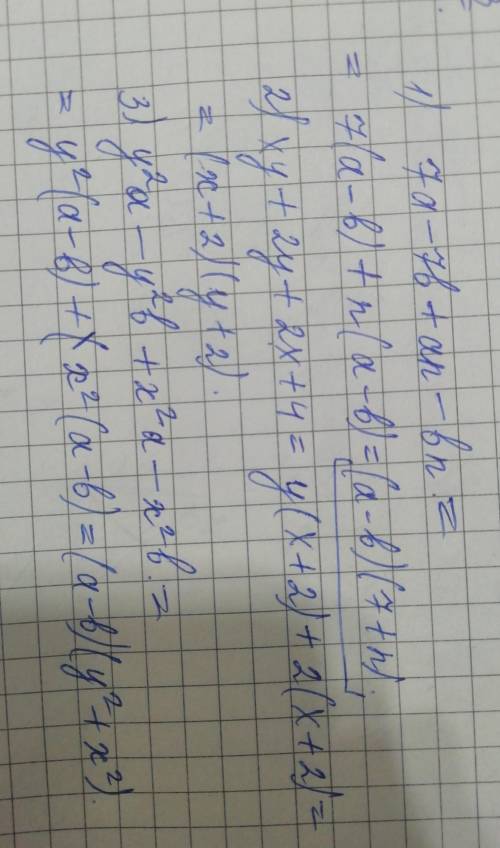 1) 7a - 7b + an - bn =
= 7(a - b) + n(a - b) = (a - b)(7 + n).
2) xy + 2y + 2x + 4 = y(x + 2) + 2(x + 2) =
= (x + 2)(y + 2).
3) y²a - y²b + x²a - x²b =
= y²(a - b) + (x²(a - b) = (a - b)(y² + x²).